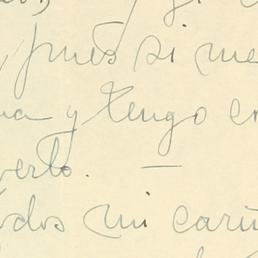 , pues si me
va y tengo en
verlo. —
todos mi cariñ